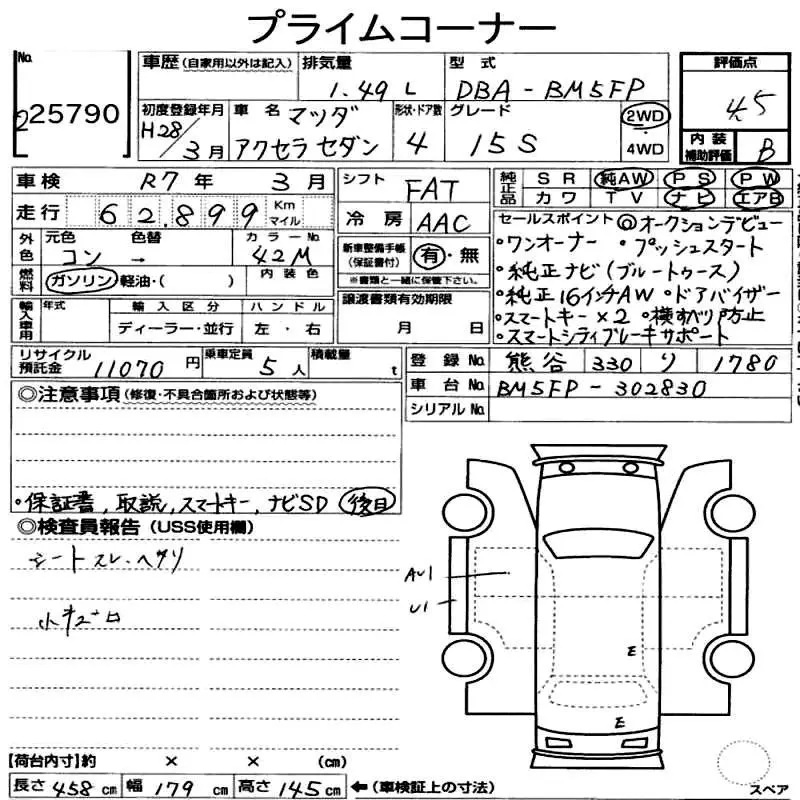 プライムコーナー
No.
225790
車歴 (自家用以外は記入)
排気量
1.49 L
型式
DBA-BM5FP
評価点
4.5
初度登録年月
H28/3月
車名
マツダ
アクセラセダン
形状・ドア数
4
グレード
15S
2WD
4WD
内装
補助評価
B
車検
R7年 3月
シフト
FAT
純正品
SR 純AW PS PW
カワ TV ナビ エアB
走行
62,899
Km
マイル
冷房
AAC
外色
元色
色替
カラーNo.
コン →
42M
新車整備手帳
(保証書付)
有・無
※書類と一緒に保管下さい。
燃料
ガソリン 軽油・( )
内装色
セールスポイント ◎オークションデビュー
・ワンオーナー ・プッシュスタート
・純正ナビ(ブルートゥース)
・純正16インチAW ・ドアバイザー
・スマートキー×2 ・横すべり防止
・スマートシティブレーキサポート
輸入車用
年式
輸入区分
ハンドル
ディーラー・並行
左・右
譲渡書類有効期限
月 日
リサイクル
預託金
11070 円
乗車定員
5人
積載量
t
登録No.
熊谷 330 り 1780
車台No.
BM5FP-302830
シリアルNo.
◎注意事項 (修復・不具合箇所および状態等)
・保証書,取説,スマートキー,ナビSD 後日
◎検査員報告 (USS使用欄)
シートスレ・ヘタリ
小キズ凹
AU1
U1
E
E
スペア
【荷台内寸】約 × × (cm)
長さ 458 cm 幅 179 cm 高さ 145 cm ←(車検証上の寸法)